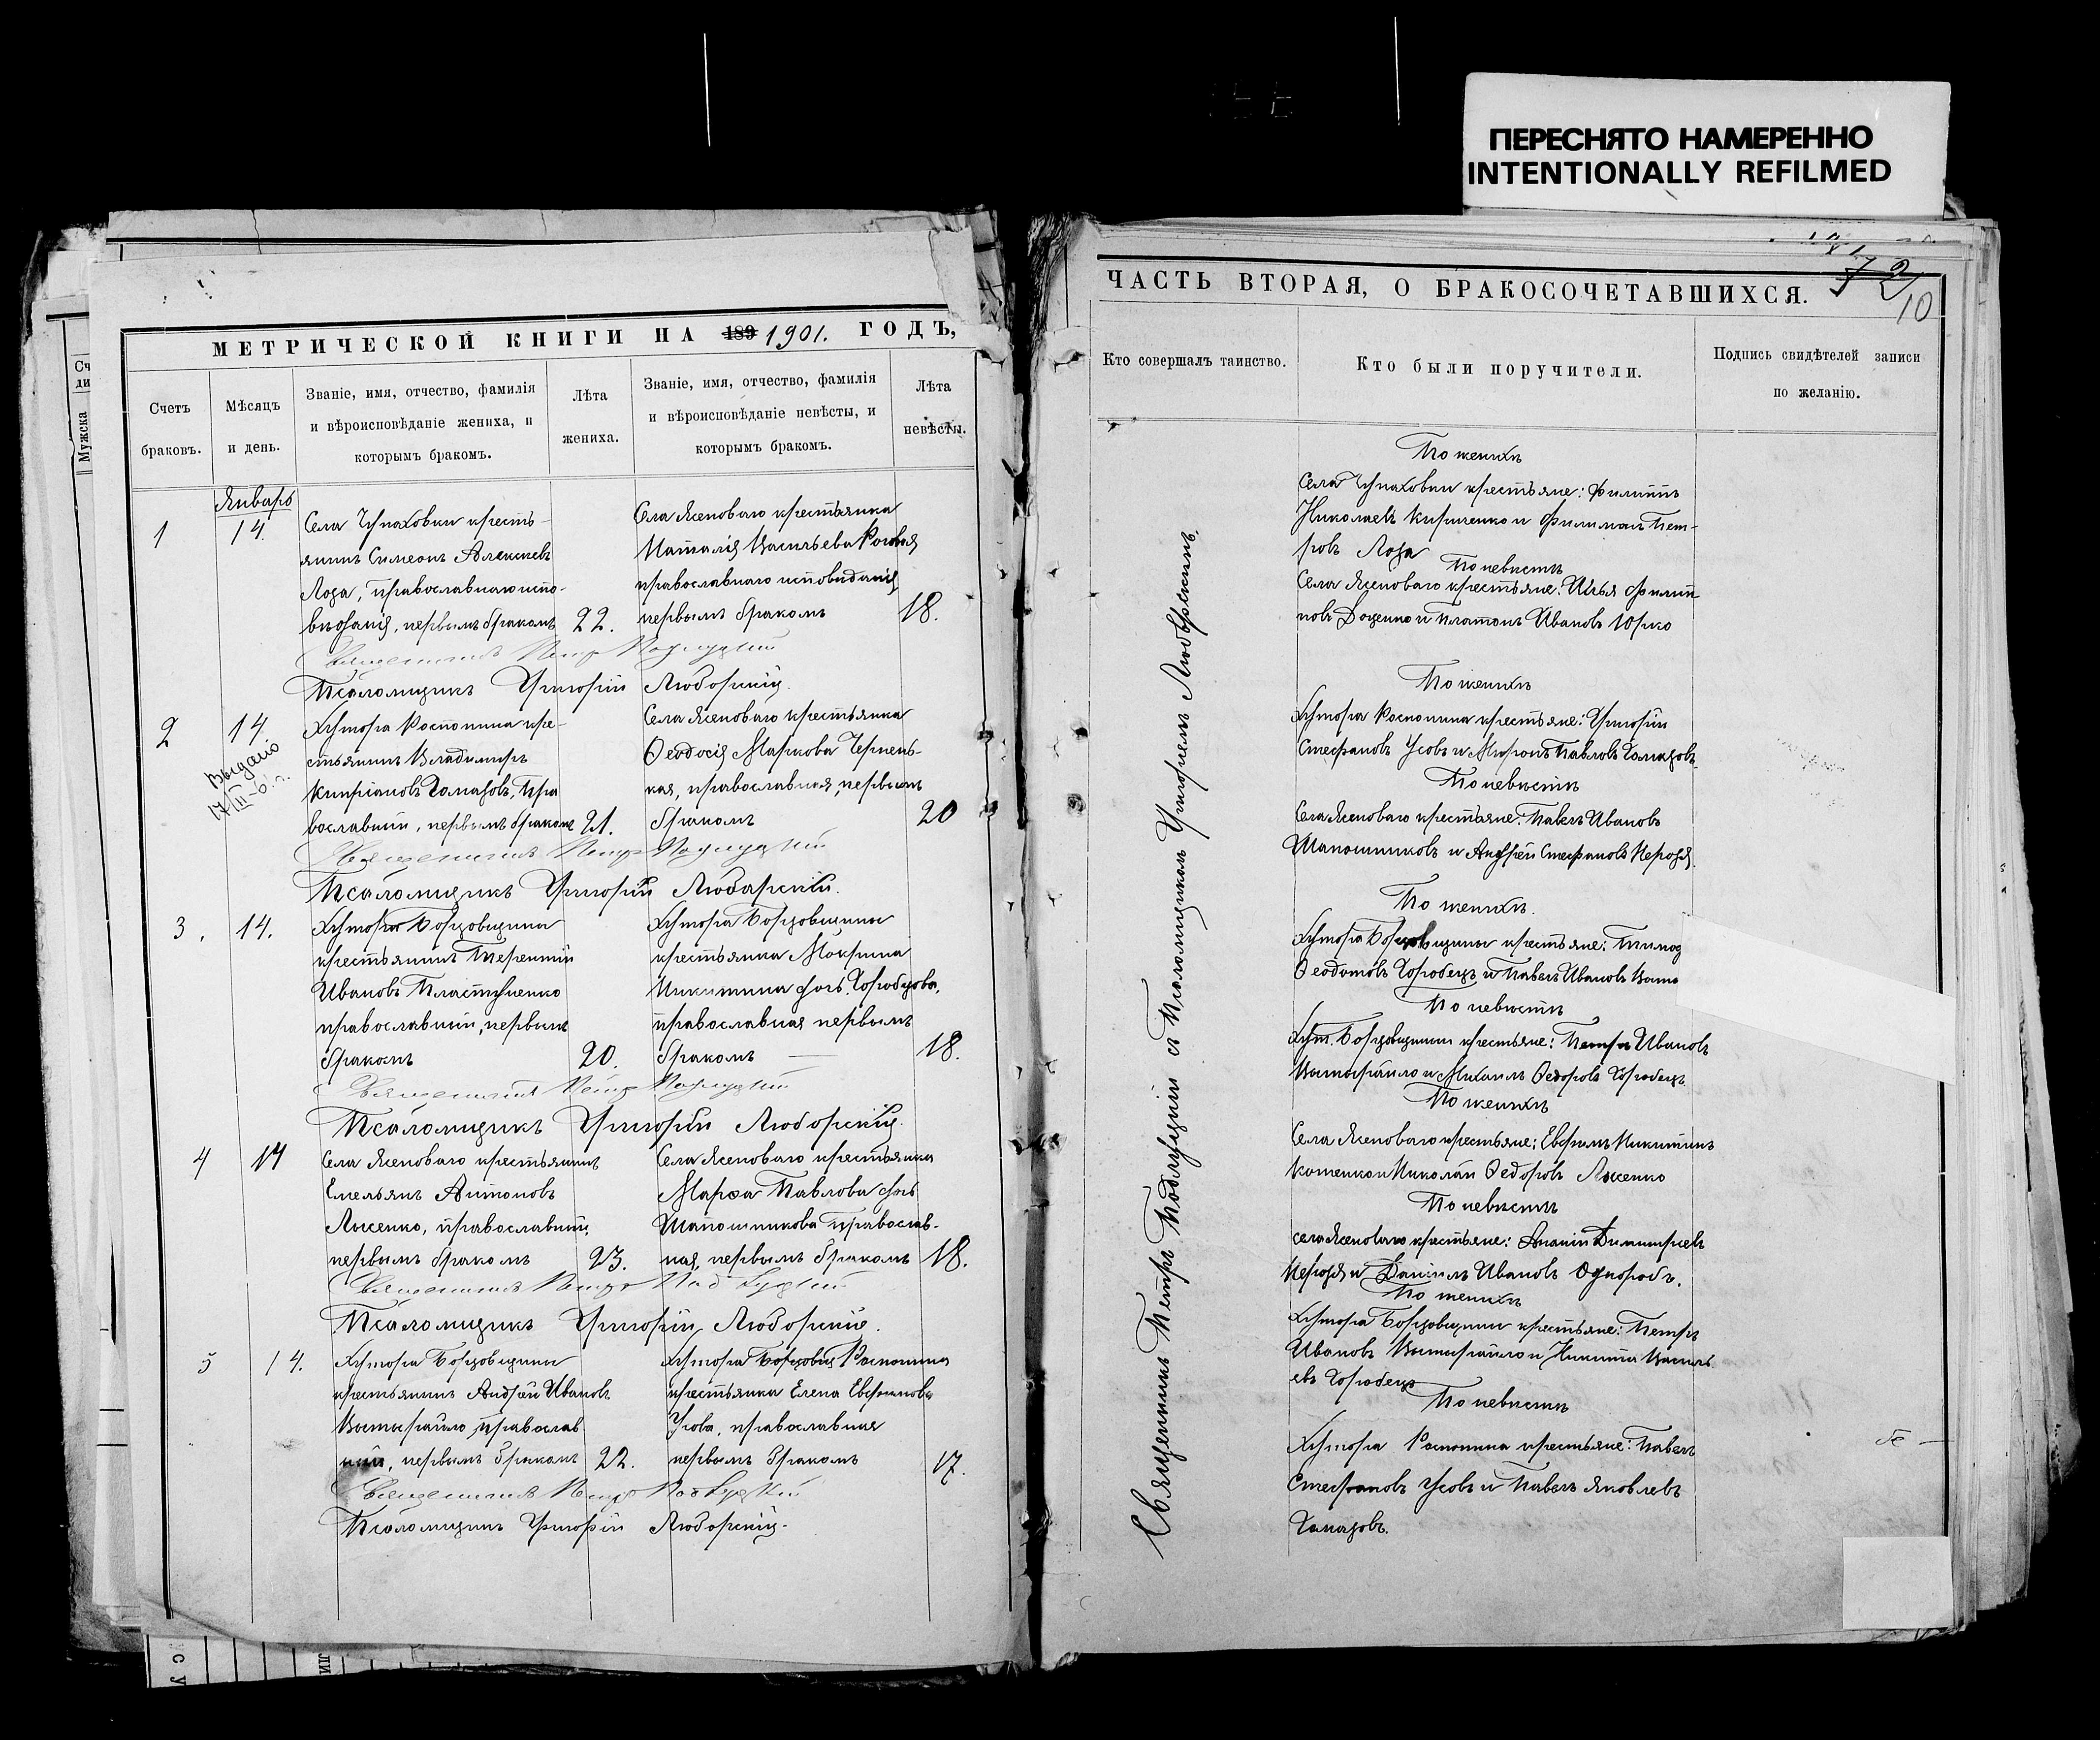 ПЕРЕСНЯТО НАМЕРЕННО
INTENTIONALLY REFILMED
МЕТРИЧЕСКОЙ КНИГИ НА 189 1901. ГОДЪ,
Счетъ браковъ.
Мѣсяцъ и день.
Званіе, имя, отчество, фамилія
и вѣроисповѣданіе жениха, и
которымъ бракомъ.
Лѣта
жениха.
Званіе, имя, отчество, фамилія
и вѣроисповѣданіе невѣсты, и
которымъ бракомъ.
Лѣта
невѣсты.
Январь
1
14.
Села Чупаховки кресть-
янинъ Симеонъ Алексѣевъ
Лоза, православнаго испо-
вѣданія, первымъ бракомъ
22.
Села Ясеноваго крестьянка
Наталія Васильева
православнаго исповѣданія
первымъ бракомъ
18.
Священникъ Петръ Подлуцкій
Псаломщикъ Григорій Любарскій.
2
14.
Выдано
17/III-6 г.
Хутора Распопина кре-
стьянинъ Владимиръ
Кипріановъ Гомазовъ, пра
вославный, первымъ бракомъ
21.
Села Ясеноваго крестьянка
Ѳеодосія Маркова Чернень-
кая, православная, первымъ
бракомъ
20
Священникъ Петръ Подлуцкій
Псаломщикъ Григорій Любарскій.
3.
14.
Хутора Борзовщины
крестьянинъ Терентій
Ивановъ Пластученко
православный, первымъ
бракомъ
20.
Хутора Борзовщины
крестьянка Мокрина
Никитина дочь Горобцова,
православная первымъ
бракомъ —
18.
Священникъ Петръ Подлуцкій
Псаломщикъ Григорій Любарскій.
4
14
Села Ясеноваго крестьянинъ
Емельянъ Антоновъ
Лысенко, православный,
первымъ бракомъ
23.
Села Ясеноваго крестьянка
Марѳа Павлова дочь
Шапошникова православ-
ная, первымъ бракомъ
18.
Священникъ Петръ Подлуцкій
Псаломщикъ Григорій Любарскій.
5
14.
Хутора Борзовщины
крестьянинъ Андрей Ивановъ
православ
ный, первымъ бракомъ
22.
Хутора Распопина
крестьянка Елена Евфимова
Усова, православная
первымъ бракомъ
17.
Священникъ Петръ Подлуцкій
Псаломщикъ Григорій Любарскій.
ЧАСТЬ ВТОРАЯ, О БРАКОСОЧЕТАВШИХСЯ.
72
10
Кто совершалъ таинство.
Кто были поручители.
Подпись свидѣтелей записи
по желанію.
Священникъ Петръ Подлуцкій съ Псаломщикомъ Григоріемъ Любарскимъ.
По женихѣ
Села Чупаховки крестьяне: Филиппъ
Николаевъ Кириченко и Филимонъ Пет-
ровъ Лоза
По невѣстѣ
Села Ясеноваго крестьяне: Илья Филип
повъ Доценко и Платонъ Ивановъ Юрко
По женихѣ
Хутора Распопина крестьяне: Григорій
Стефановъ Усовъ и Миронъ Павловъ Гомазовъ
По невѣстѣ
Села Ясеноваго крестьяне: Павелъ Ивановъ
Шапошниковъ и Андрей Стефановъ
По женихѣ.
Хутора Борзовщины крестьяне:
Ѳеодотовъ Горобецъ и Павелъ Ивановъ
По невѣстѣ
Хут. Борзовщины крестьяне: Петръ Ивановъ
и Михаилъ Ѳедоровъ Горобецъ
По женихѣ
Села Ясеноваго крестьяне: Евфимъ Никитинъ
Котенко и Николай Ѳедоровъ Лысенко
По невѣстѣ
села Ясеноваго крестьяне: Ананій Димитріевъ
и Даніилъ Ивановъ Однорогъ.
По женихѣ
Хутора Борзовщины крестьяне: Петръ
Ивановъ и Никита Василь
евъ Горобецъ
По невѣстѣ
Хутора Распопина крестьяне: Павелъ
Стефановъ Усовъ и Павелъ Яковлевъ
Гомазовъ.